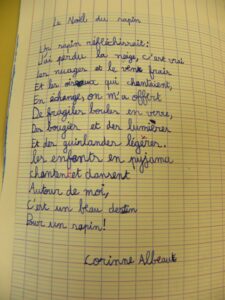 Le Noël du sapin
Un sapin réfléchissait :
J'ai perdu la neige, c'est vrai
Les nuages et le vent frais
Et les oiseaux qui chantaient,
En échange, on m'a offert
De fragiles boules en verre,
Des bougies et des lumières
Et des guirlandes légères.
Les enfants en pyjama
Chantent et dansent
Autour de moi,
C'est un beau destin
Pour un sapin!
Corinne Albaut